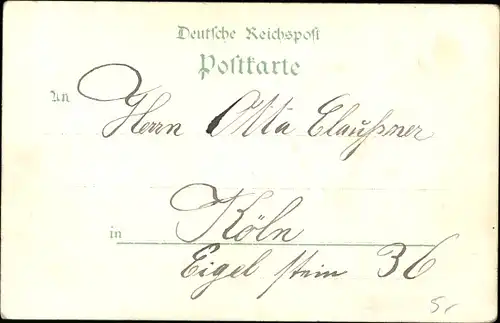 Deutsche Reichspost
Postkarte
An Herrn Otto Claußner
in Köln
Eigelstein 36
5,-